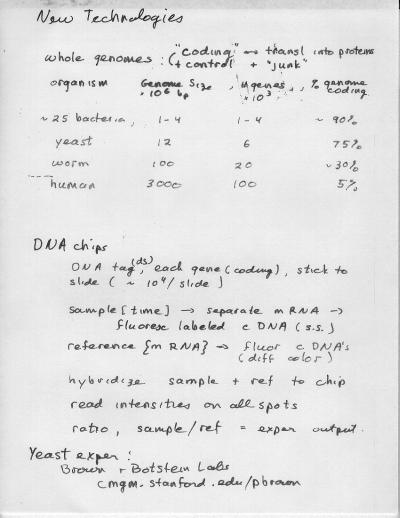 New Technologies
whole genomes : ("coding" → transl into proteins
+ control + "junk"
organism Genome Size, # genes, % genome
× 10⁶ bp × 10³ coding
~ 25 bacteria, 1-4 1-4 ~ 90%
yeast 12 6 75%
worm 100 20 ~30%
human 3000 100 5%
DNA chips
DNA tag (ds), each gene (coding), stick to
slide ( ~ 10⁴ / slide )
sample [time] → separate mRNA →
fluoresc labeled c DNA (s.s.)
reference {m RNA} → fluor c DNA's
(diff color)
hybridize sample + ref to chip
read intensities on all spots
ratio, sample/ref = exper output.
Yeast exper:
Brown + Botstein Labs
cmgm.stanford.edu/pbrown